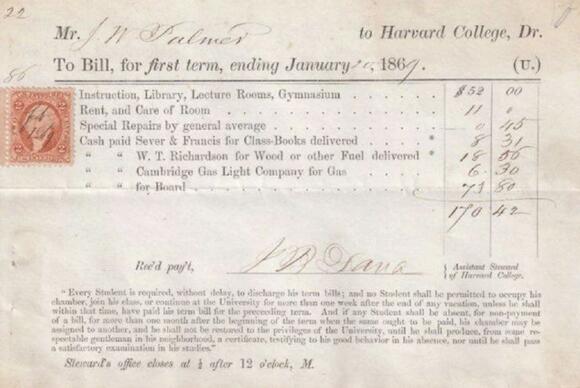 22
Mr. J W Palmer to Harvard College, Dr.
To Bill, for first term, ending January 20, 1869. (U.)
86
Instruction, Library, Lecture Rooms, Gymnasium $52 00
Rent, and Care of Room 11 0
Special Repairs by general average 0 45
Cash paid Sever & Francis for Class-Books delivered * 8 31
" " W. T. Richardson for Wood or other Fuel delivered * 18
" " Cambridge Gas Light Company for Gas 6 30
" " for Board 73 80
170 42
Rec'd pay't, J B Dana
Assistant Steward
of Harvard College.
"Every Student is required, without delay, to discharge his term bills; and no Student shall be permitted to occupy his
chamber, join his class, or continue at the University for more than one week after the end of any vacation, unless he shall
within that time, have paid his term bill for the preceeding term. And if any Student shall be absent, for non-payment
of a bill, for more than one month after the beginning of the term when the same ought to be paid, his chamber may be
assigned to another, and he shall not be restored to the privileges of the University, until he shall produce, from some res-
pectable gentleman in his neighborhood, a certificate, testifying to his good behavior in his absence, nor until he shall pass
a satisfactory examination in his studies."
Steward's office closes at ½ after 12 o'clock, M.